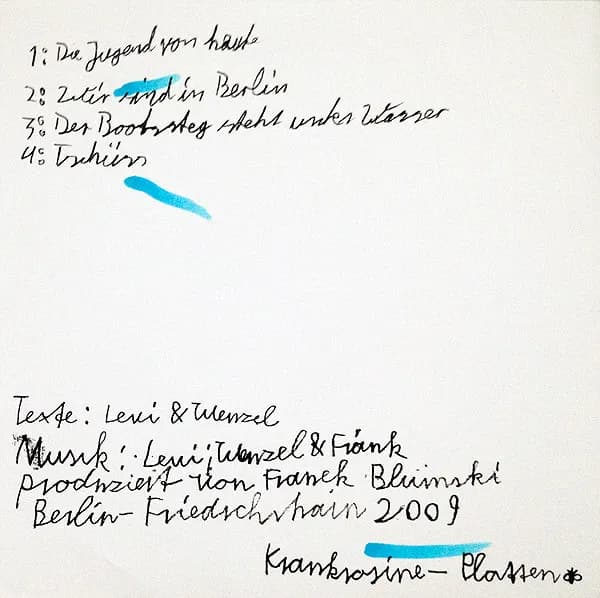 1: Die Jugend von heute
2: Wir sind in Berlin
3: Der Bootssteg steht unter Wasser
4: Tschüss
Texte: Levi & Wenzel
Musik: Levi, Wenzel & Frank
produziert von Franek Blümski
Berlin-Friedrichshain 2009
Krankrosine-Platten*